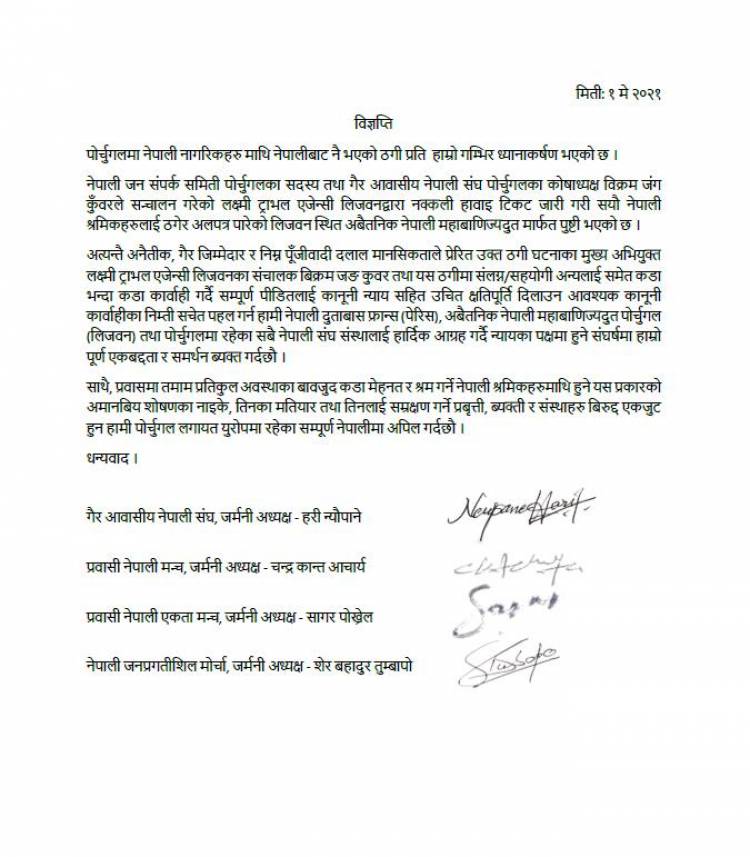 मिती: १ मे २०२१
विज्ञप्ति
पोर्चुगलमा नेपाली नागरिकहरु माथि नेपालीबाट नै भएको ठगी प्रति हाम्रो गम्भिर ध्यानाकर्षण भएको छ ।
नेपाली जन संपर्क समिती पोर्चुगलका सदस्य तथा गैर आवासीय नेपाली संघ पोर्चुगलका कोषाध्यक्ष विक्रम जंग
कुँवरले सन्चालन गरेको लक्ष्मी ट्राभल एजेन्सी लिजवनद्वारा नक्कली हावाइ टिकट जारी गरी सयौ नेपाली
श्रमिकहरुलाई ठगेर अलपत्र पारेको लिजवन स्थित अबैतनिक नेपाली महाबाणिज्यदुत मार्फत पुष्टी भएको छ ।
अत्यन्तै अनैतीक, गैर जिम्मेदार र निम्न पूँजीवादी दलाल मानसिकताले प्रेरित उक्त ठगी घटनाका मुख्य अभियुक्त
लक्ष्मी ट्राभल एजेन्सी लिजवनका संचालक बिक्रम जङ कुवर तथा यस ठगीमा संलग्न/सहयोगी अन्यलाई समेत कडा
भन्दा कडा कार्वाही गर्दै सम्पूर्ण पीडितलाई कानूनी न्याय सहित उचित क्षतिपूर्ति दिलाउन आवश्यक कानूनी
कार्वाहीका निम्ती सचेत पहल गर्न हामी नेपाली दुताबास फ्रान्स (पेरिस), अबैतनिक नेपाली महाबाणिज्यदुत पोर्चुगल
(लिजवन) तथा पोर्चुगलमा रहेका सबै नेपाली संघ संस्थालाई हार्दिक आग्रह गर्दै न्यायका पक्षमा हुने संघर्षमा हाम्रो
पूर्ण एकबद्दता र समर्थन ब्यक्त गर्दछौ ।
साथै, प्रवासमा तमाम प्रतिकुल अवस्थाका बावजुद कडा मेहनत र श्रम गर्ने नेपाली श्रमिकहरुमाथि हुने यस प्रकारको
अमानबिय शोषणका नाइके, तिनका मतियार तथा तिनलाई सम्रक्षण गर्ने प्रबृत्ती, ब्यक्ती र संस्थाहरु बिरुद्द एकजुट
हुन हामी पोर्चुगल लगायत युरोपमा रहेका सम्पूर्ण नेपालीमा अपिल गर्दछौ ।
धन्यवाद ।
गैर आवासीय नेपाली संघ, जर्मनी अध्यक्ष - हरी न्यौपाने
प्रवासी नेपाली मन्च, जर्मनी अध्यक्ष - चन्द्र कान्त आचार्य
प्रवासी नेपाली एकता मन्च, जर्मनी अध्यक्ष - सागर पोख्रेल
नेपाली जनप्रगतीशिल मोर्चा, जर्मनी अध्यक्ष - शेर बहादुर तुम्बापो